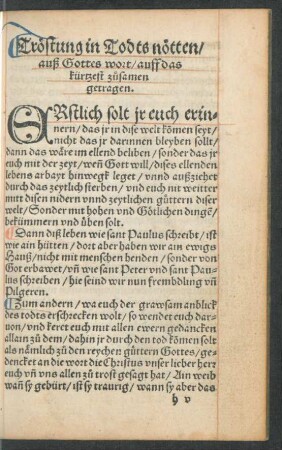 Tröstung in Todts nötten/
auß Gottes wort/auff das
kürtzest zůsamen
getragen.
ERstlich solt jr euch erin-
nern/das jr in dise welt kōmen seyt/
nicht das jr darinnen bleyben sollt/
dann das wäre im ellend beliben/sonder das jr
euch mit der zeyt/weñ Gott will/dises ellenden
lebens arbayt hinwegk leget/vnnd außziehet
durch das zeytlich sterben/vnd euch nit weitter
mitt disen nidern vnnd zeytlichen güttern diser
welt/Sonder mit hohen vnd Götlichen dingē/
bekümmern vnd üben solt.
Dann diß leben wie sant Paulus schreibt/ist
wie ain hütten/dort aber haben wir ain ewigs
Hauß/nicht mit menschen henden/sonder von
Got erbawet/vñ wie sant Peter vnd sant Pau-
lus schreiben/hie seind wir nun frembdling vñ
Pilgeren.
Zum andern/wa euch der grawsam anblick
des todts erschrecken wolt/so wendet euch dar-
uon/vnd keret euch mit allen ewern gedancken
allain zů dem/dahin jr durch den tod kōmen solt
als nämlich zů den reychen güttern Gottes/ge-
dencket an die wort die Christus vnser lieber herr
euch vñ vns allen zů trost gesagt hat/Ain weib
wañ sy gebürt/ist sy traurig/wann sy aber das
h v